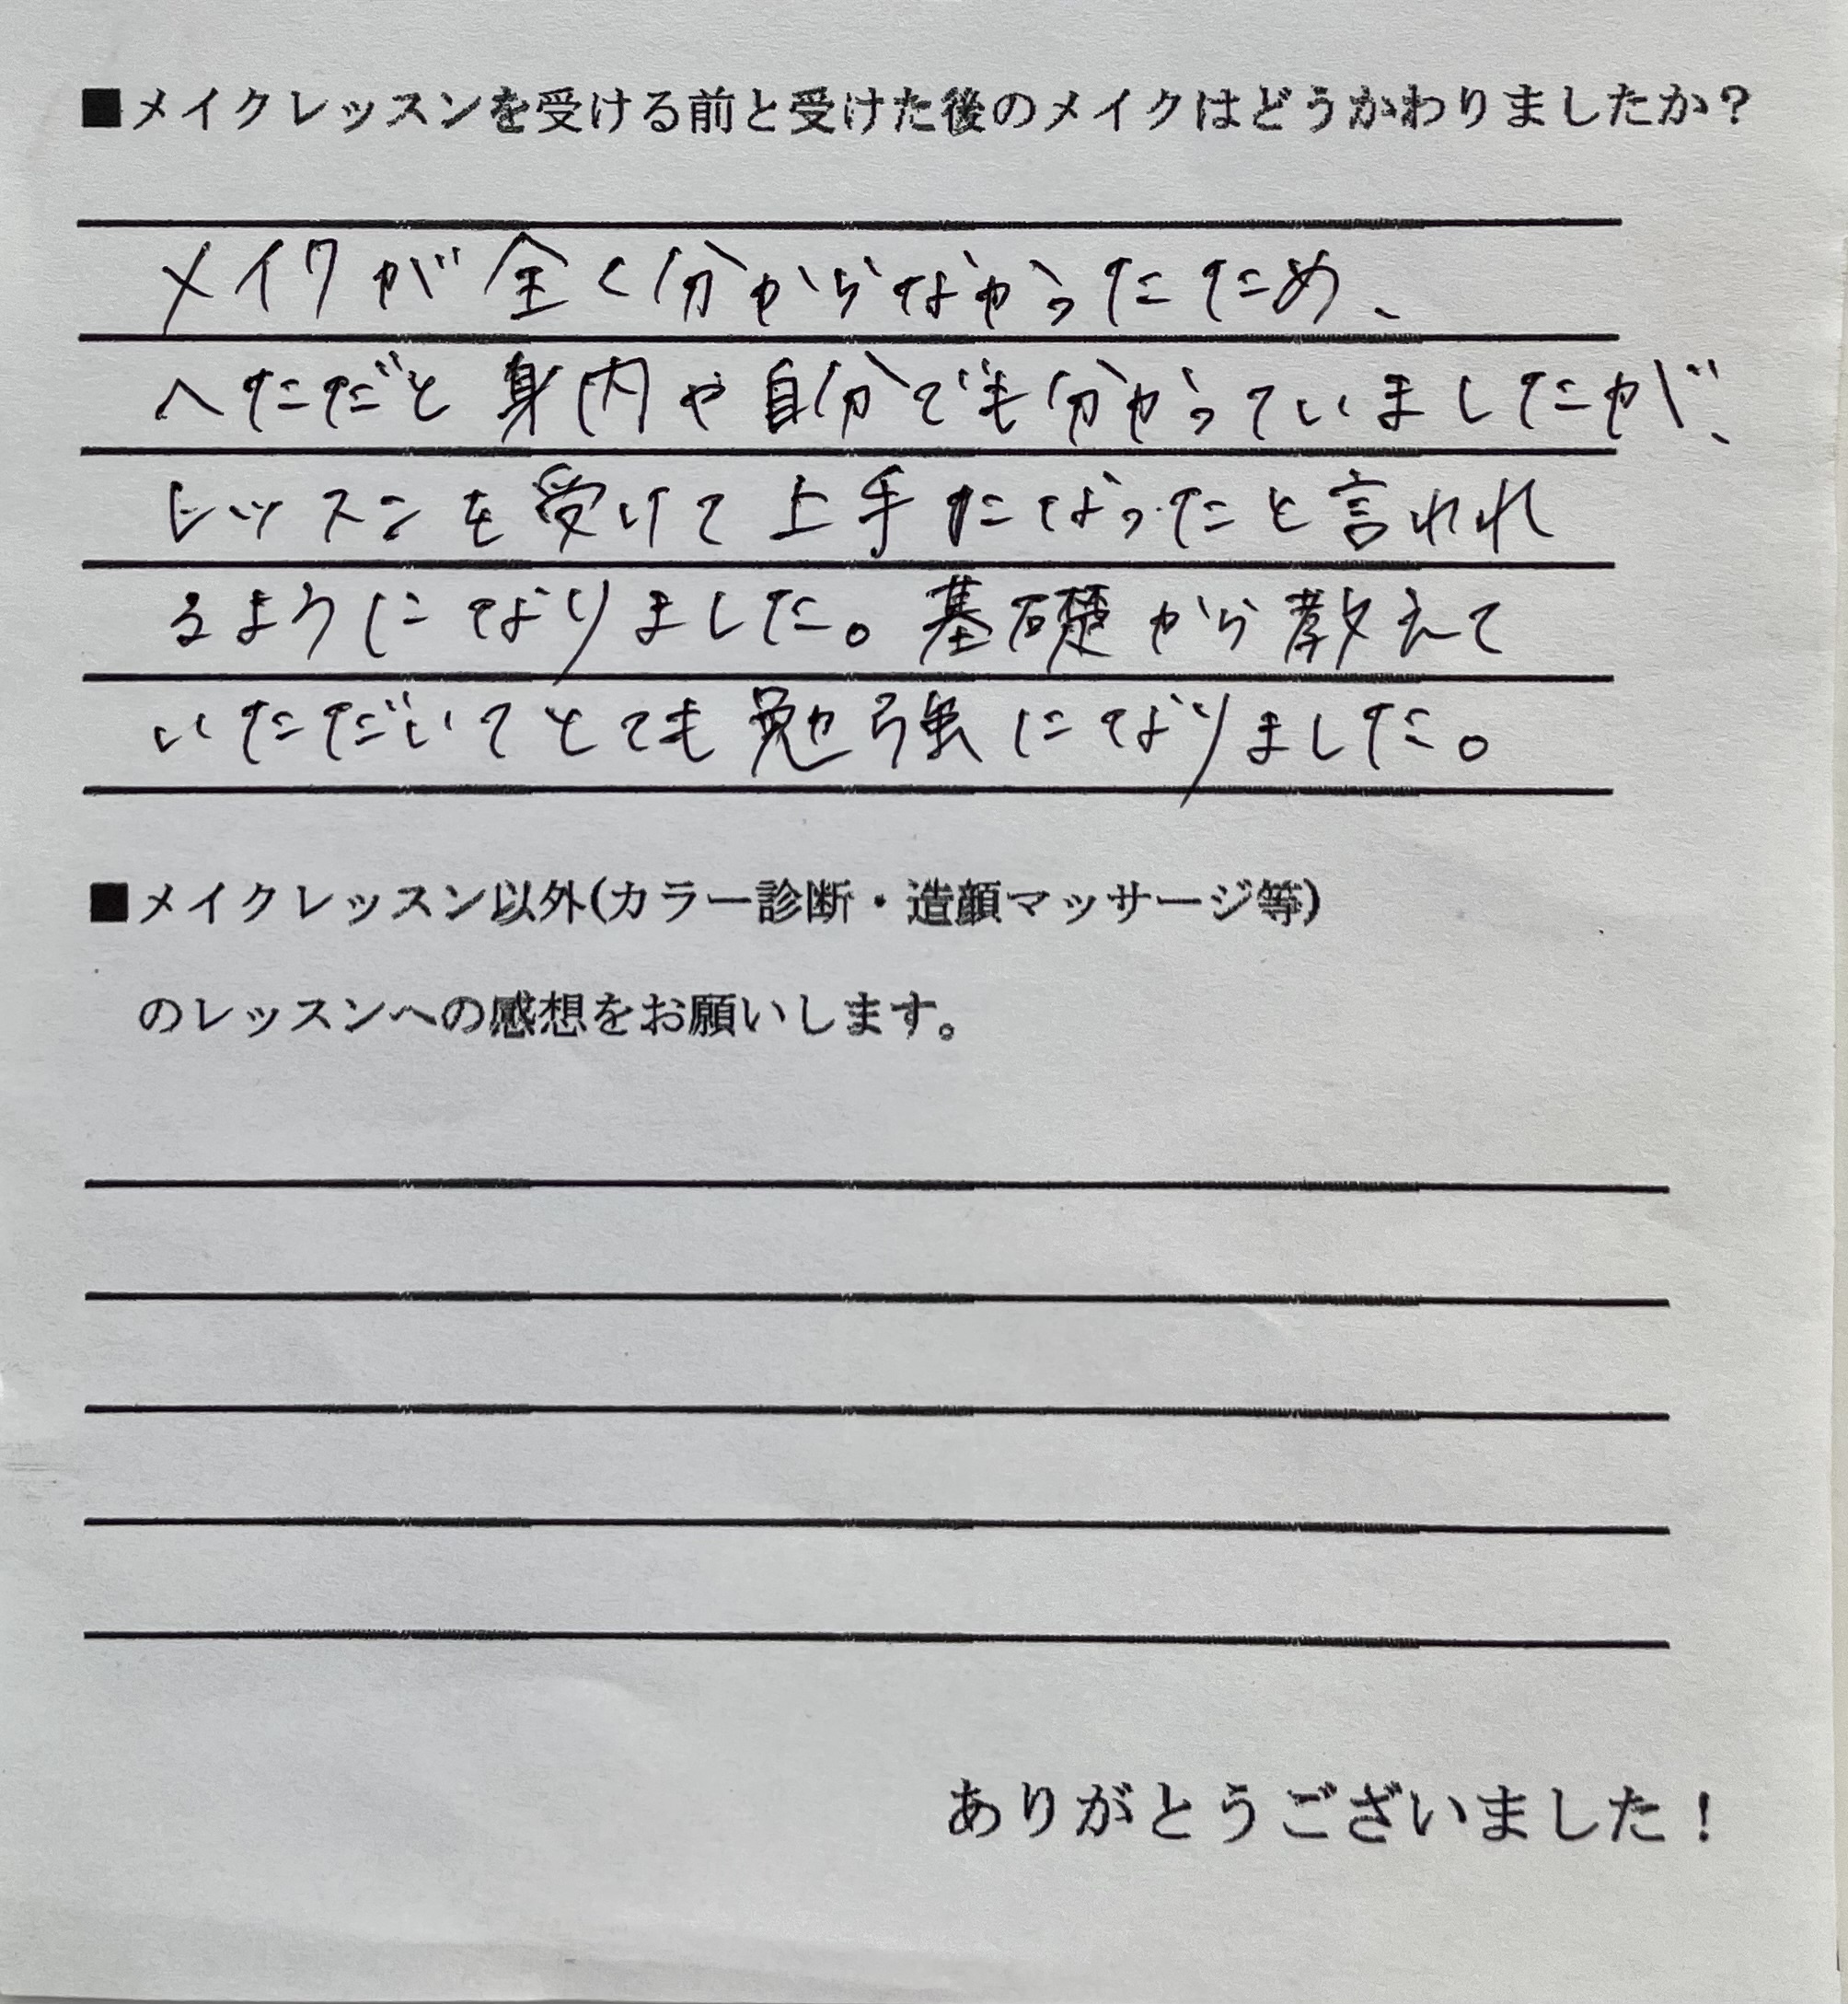 ■メイクレッスンを受ける前と受けた後のメイクはどうかわりましたか？
メイクが全く分からなかったため、
へただと身内や自分でも分かっていましたが、
レッスンを受けて上手になったと言われ
るようになりました。基礎から教えて
いただいてとても勉強になりました。
■メイクレッスン以外(カラー診断・造顔マッサージ等)
のレッスンへの感想をお願いします。
ありがとうございました！